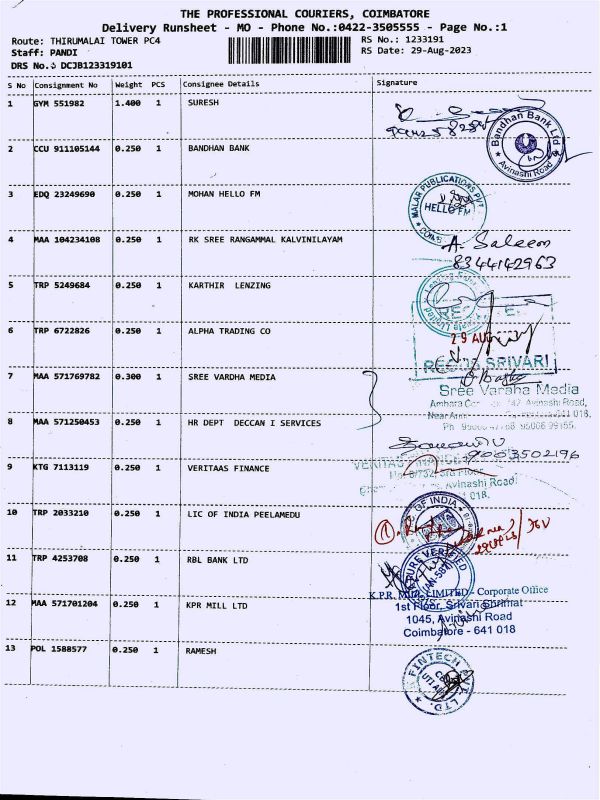 THE PROFESSIONAL COURIERS, COIMBATORE
Delivery Runsheet - MO - Phone No.:0422-3505555 - Page No.:1
Route: THIRUMALAI TOWER PC4
RS No.: 1233191
Staff: PANDI
RS Date: 29-Aug-2023
DRS No.: DCJB123319101
S No Consignment No Weight PCS Consignee Details Signature
1 GYM 551982 1.400 1 SURESH
Bandhan Bank Ltd
Avinashi Road
2 CCU 911105144 0.250 1 BANDHAN BANK
3 EDQ 23249690 0.250 1 MOHAN HELLO FM
MALAR PUBLICATIONS PVT
HELLO FM
4 MAA 104234108 0.250 1 RK SREE RANGAMMAL KALVINILAYAM
A. Saleem
8344142963
5 TRP 5249684 0.250 1 KARTHIR LENZING
6 TRP 6722826 0.250 1 ALPHA TRADING CO
29 AUG
SRIVARI
7 MAA 571769782 0.300 1 SREE VARDHA MEDIA
Sree Varsha Media
Avinashi Road,
8 MAA 571250453 0.250 1 HR DEPT DECCAN I SERVICES
9003502196
9 KTG 7113119 0.250 1 VERITAAS FINANCE
VERITAS FINANCE
Avinashi Road
10 TRP 2033210 0.250 1 LIC OF INDIA PEELAMEDU
OF INDIA
11 TRP 4253708 0.250 1 RBL BANK LTD
VERIFIED
12 MAA 571701204 0.250 1 KPR MILL LTD
K.P.R. MILL LIMITED - Corporate Office
1st Floor, Srivari Shrimat
1045, Avinashi Road
Coimbatore - 641 018
13 POL 1588577 0.250 1 RAMESH
FINTECH
LTD.